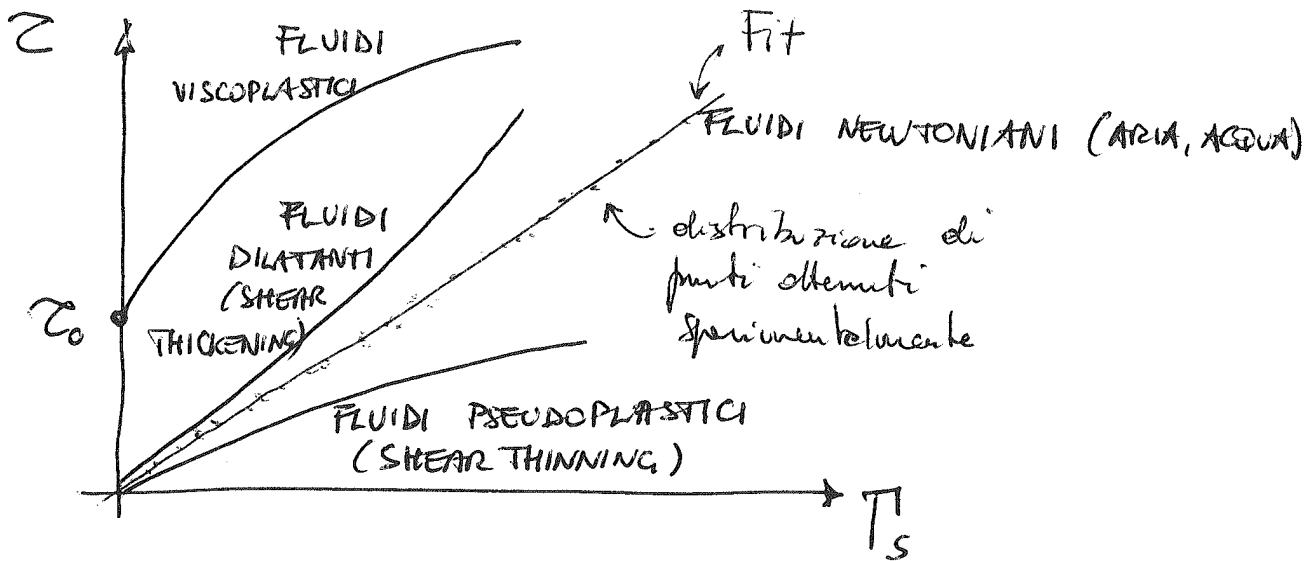 τ
FLUIDI
VISCOPLASTICI
Fit
FLUIDI NEWTONIANI (ARIA, ACQUA)
FLUIDI
DILATANTI
(SHEAR
THICKENING)
distribuzione di
punti ottenuti
sperimentalmente
τ₀
FLUIDI PSEUDOPLASTICI
(SHEAR THINNING)
Γₛ